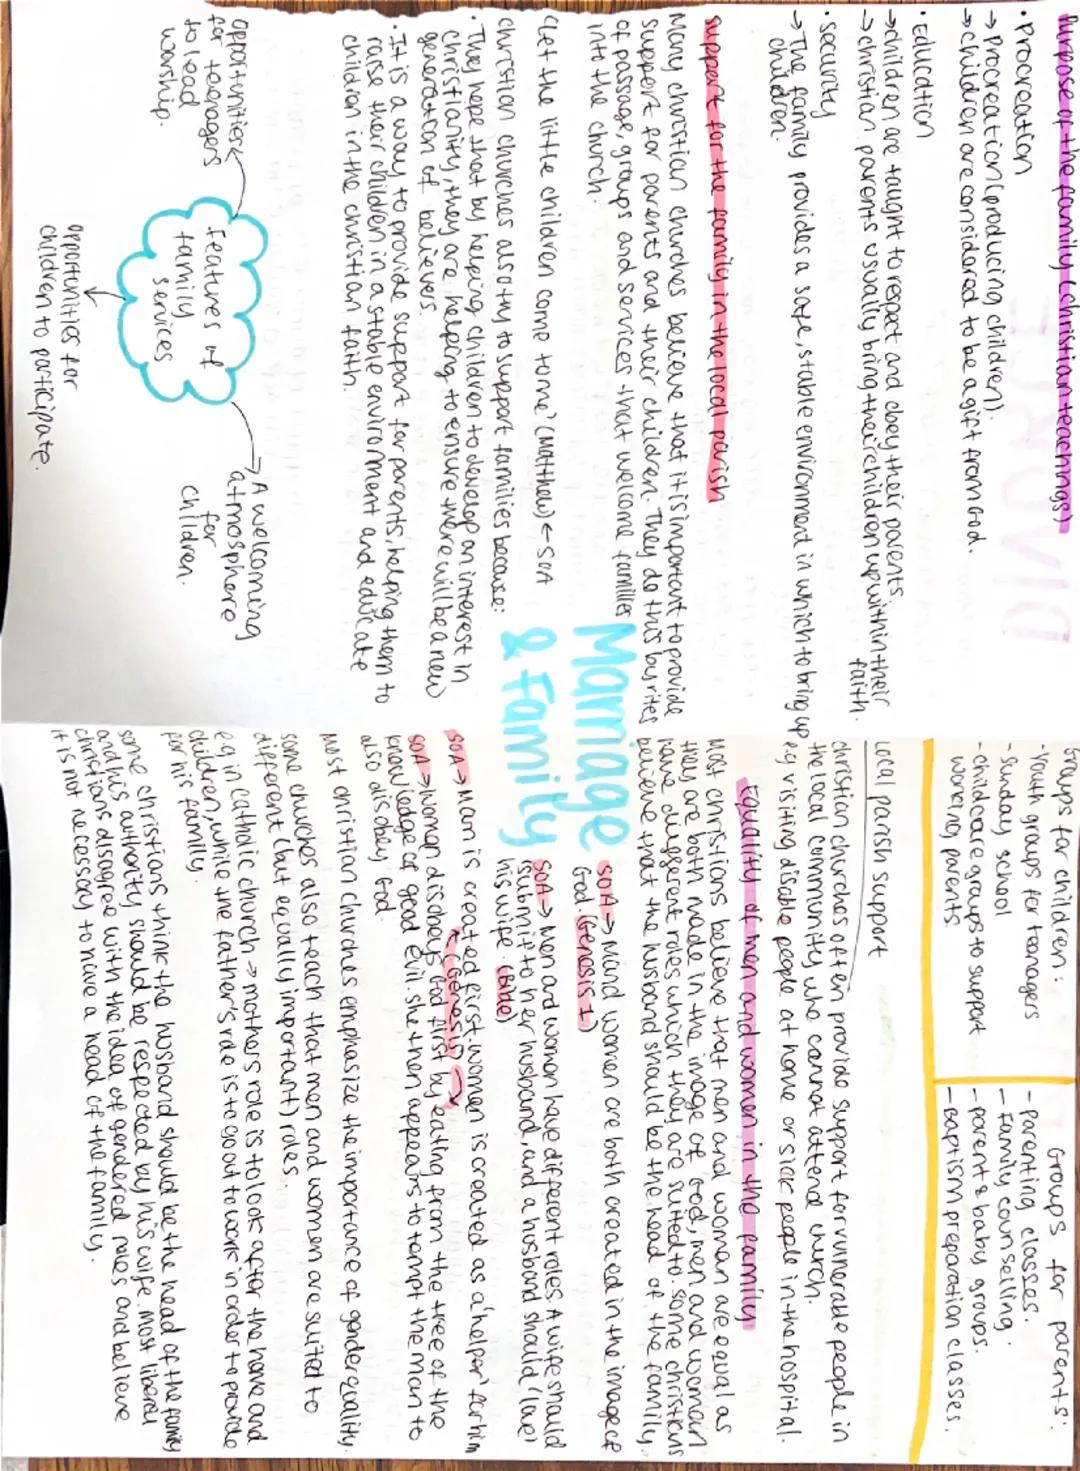 Purpose of the family (christian teachings)
· Procreation
→ Procreation (producing children).
→ children are considered to be a gift from God.
· Education
→ children are taught to respect and obey their parents.
→ christian parents usually bring their children up within their
faith.
· security
→ The family provides a safe, stable environment in which to bring up
children.
support for the family in the local parish
Many christian churches believe that it is important to provide
support for parents and their children. They do this by rites
of passage, groups and services that welcome families
into the church.
'Let the little children come to me' (Matthew) ← SOA
christian churches also try to support families because:
· They hope that by helping children to develop an interest in
christianity, they are helping to ensure there will be a new
generation of believers.
· It is a way to provide support for parents, helping them to
raise their children in a stable environment and educate
children in the christian faith.
features of
family
services
opportunities
for teenagers
to lead
worship.
A welcoming
atmosphere
for
children.
opportunities for
children to participate.
Marriage
& Family
Groups for children:
- Youth groups for teenagers
- Sunday school
- childcare groups to support
working parents
Groups for parents:
- Parenting classes.
- Family counselling.
- parent & baby groups.
- Baptism preparation classes.
Local parish support
christian churches often provide support for vulnerable people in
the local community who cannot attend church.
e.g visiting disable people at home or sick people in the hospital.
Equality of men and women in the family
Most christians believe that men and woman are equal as
they are both made in the image of God, men and woman
have different roles which they are suited to. some christians
believe that the husband should be the head of the family.
SOA → M and women are both created in the image of
God. (Genesis 1)
SOA → Men and women have different roles. A wife should
'submit' to her husband, and a husband should 'love'
his wife. (Bible)
SOA → Man is created first, women is created as a 'helper' for him
(Genesis)
SOA → Woman disobeys God first by eating from the tree of the
knowledge of good & evil. she then appears to tempt the man to
also disobey God.
Most christian churches emphasize the importance of gender equality.
some churches also teach that men and women are suited to
different (but equally important) roles.
e.g in catholic church → mothers role is to look after the home and
children, while the father's role is to go out to work in order to provide
for his family.
some christians think the husband should be the head of the family
and his authority should be respected by his wife. Most liberal
christians disagree with the idea of gendered roles and believe
it is not necessary to have a head of the family.